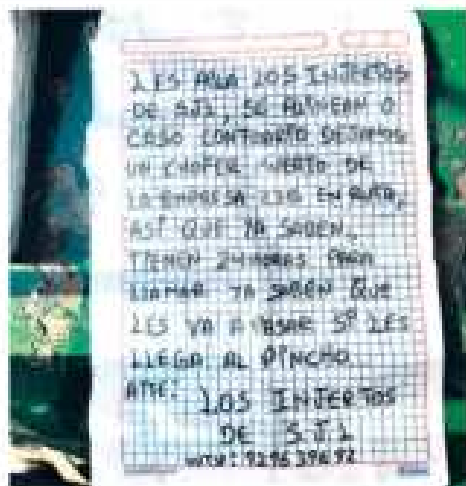 LES HABLA LOS INJERTOS
DE SJL, SE ALINEAN O
CASO CONTRARIO DEJAMOS
UN CHOFER MUERTO DE
LA EMPRESA EN RUTA,
ASÍ QUE YA SABEN,
TIENEN 24 HORAS PARA
LLAMAR YA SABEN QUE
LES VA A PASAR SI LES
LLEGA AL PINCHO
ATTE:
LOS INJERTOS
DE SJL